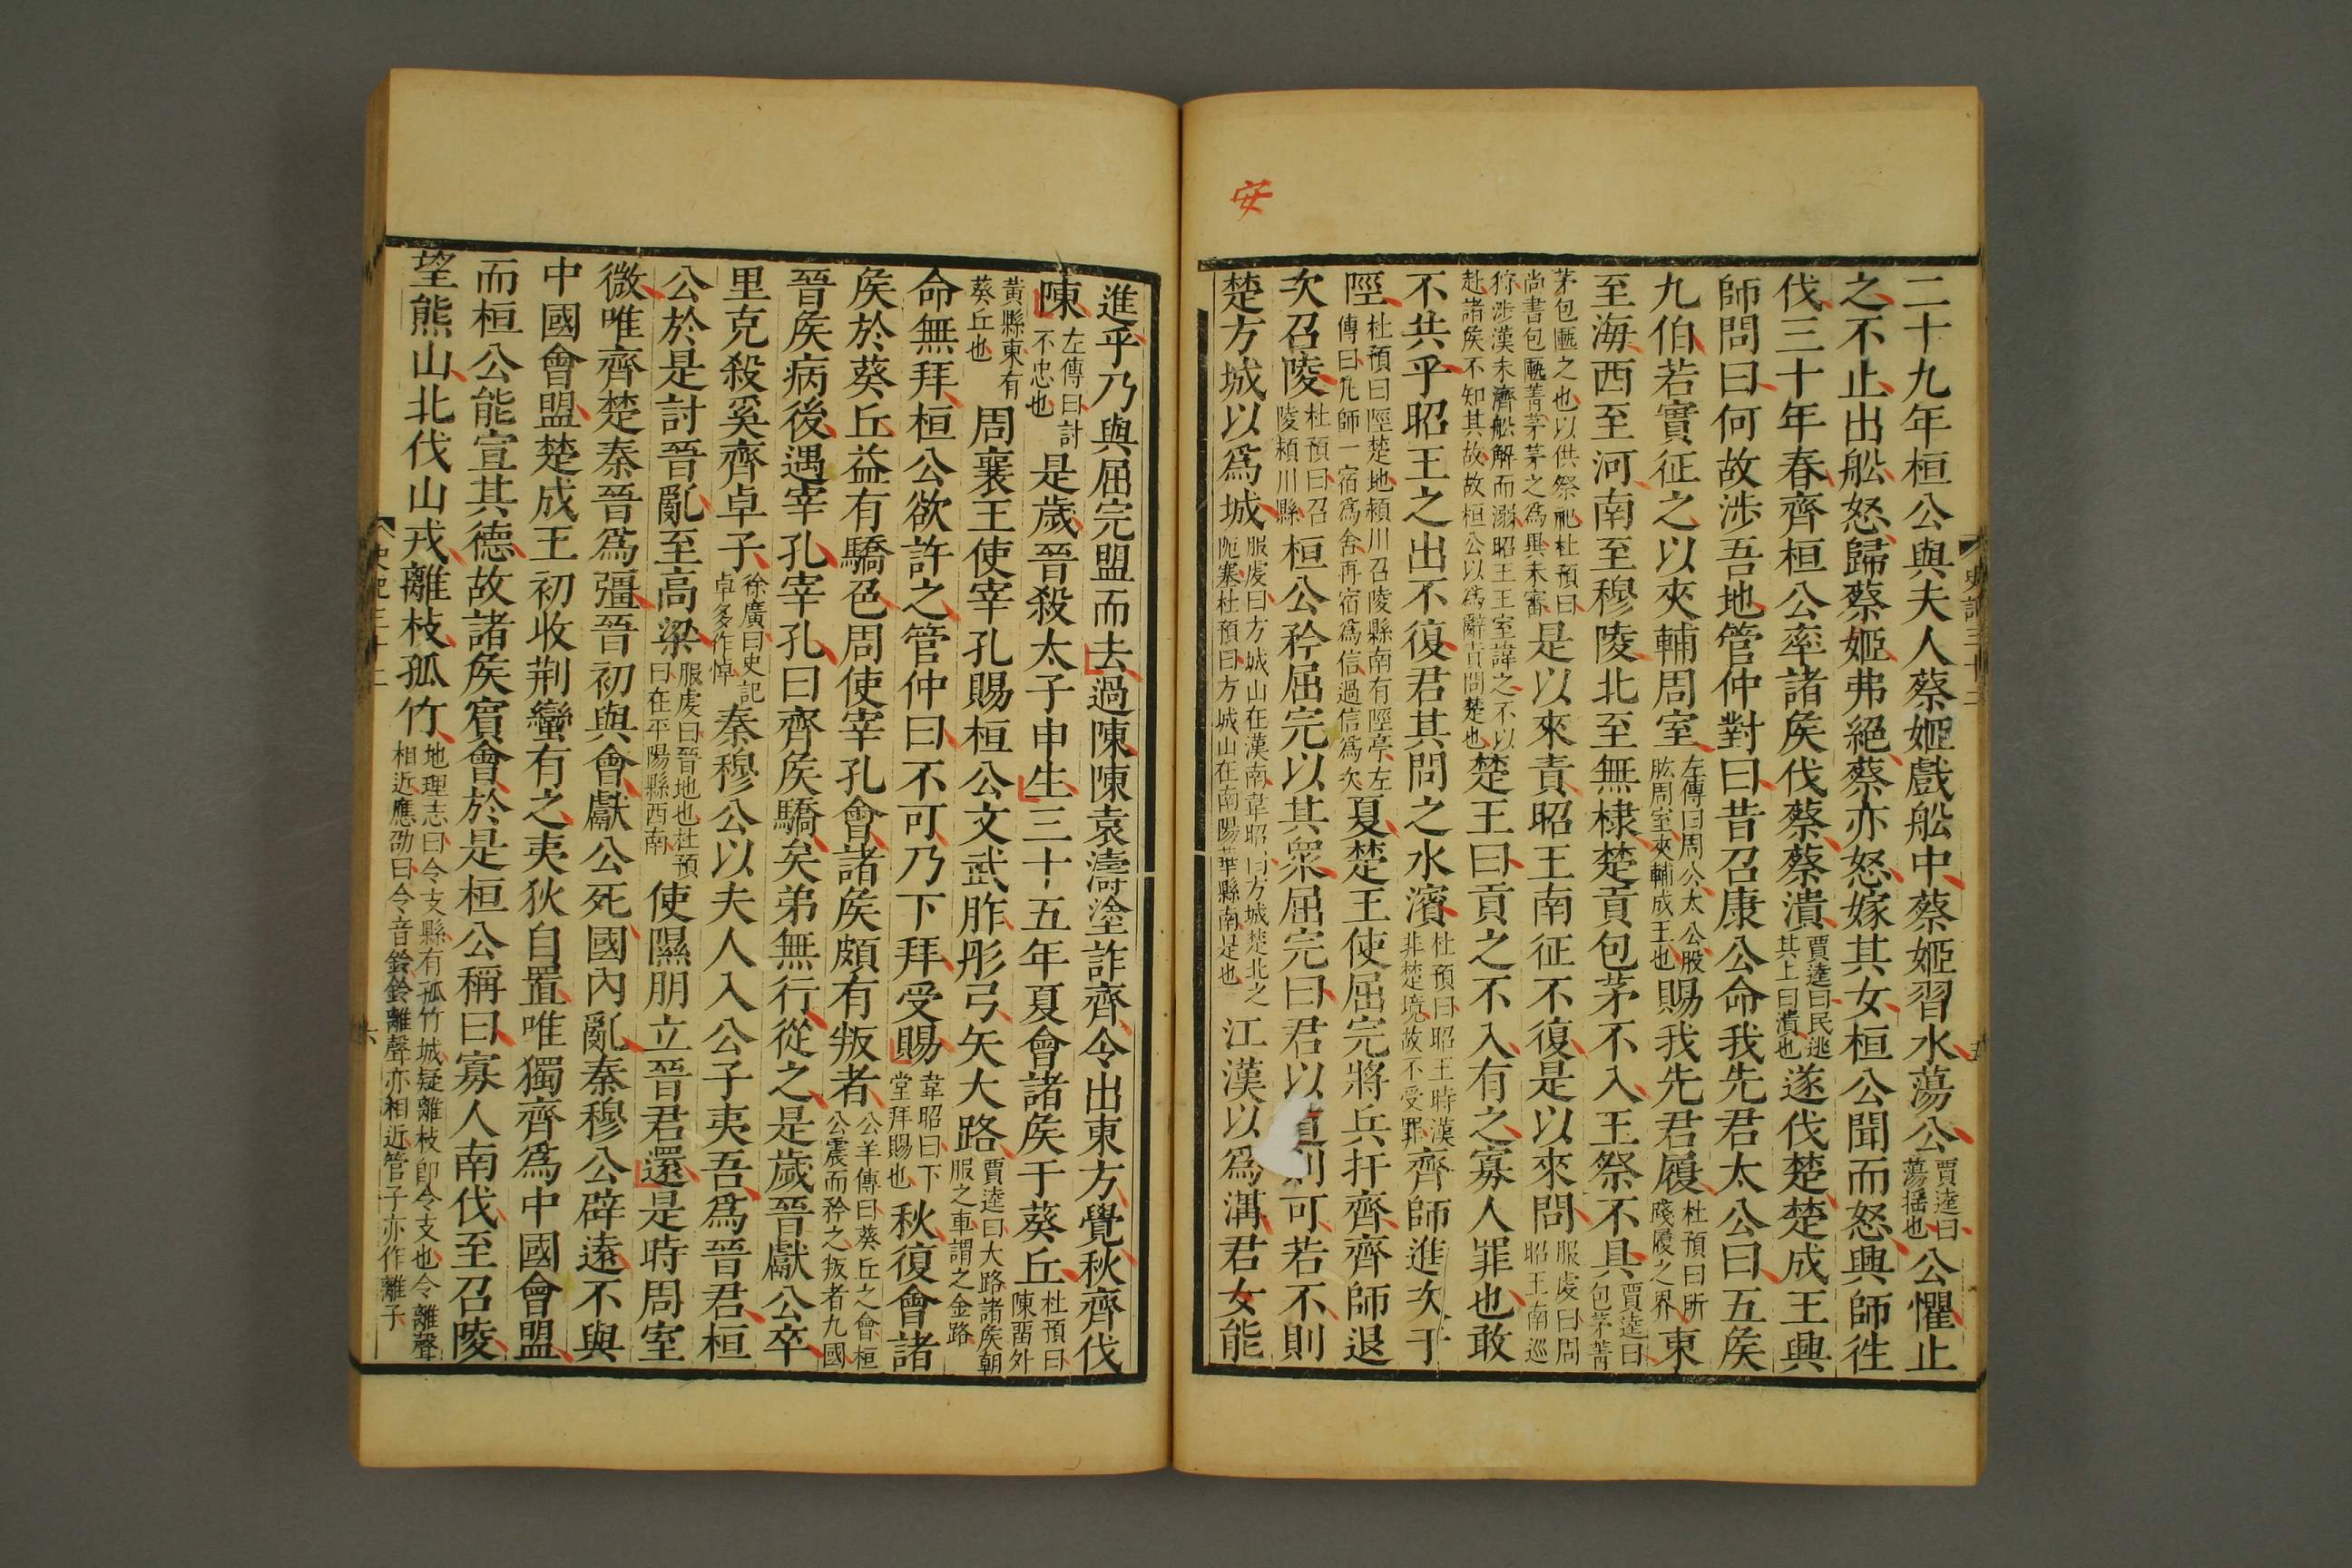 安
史記三十二
五
二十九年桓公與夫人蔡姬戲船中蔡姬習水蕩公賈逵曰蕩搖也公懼止
之不止出船怒歸蔡姬弗絕蔡亦怒嫁其女桓公聞而怒興師往
伐三十年春齊桓公率諸矦伐蔡蔡潰賈逵曰民逃其上曰潰也遂伐楚楚成王興
師問曰何故涉吾地管仲對曰昔召康公命我先君太公曰五矦
九伯若實征之以夾輔周室左傳曰周公太公股肱周室夾輔成王也賜我先君履杜預曰所踐履之界東
至海西至河南至穆陵北至無棣楚貢包茅不入王祭不具賈逵曰包茅菁
茅包匭之也以供祭祀杜預曰尚書包匭菁茅茅之爲異未審是以來責昭王南征不復是以來問服虔曰周昭王南巡
狩涉漢未濟船解而溺昭王王室諱之不以赴諸矦不知其故故桓公以爲辭責問楚也楚王曰貢之不入有之寡人罪也敢
不共乎昭王之出不復君其問之水濱杜預曰昭王時漢非楚境故不受罪齊師進次于
陘杜預曰陘楚地潁川召陵縣南有陘亭左傳曰凡師一宿爲舍再宿爲信過信爲次夏楚王使屈完將兵扞齊齊師退
次召陵杜預曰召陵潁川縣桓公矜屈完以其衆屈完曰君以道則可若不則
楚方城以爲城服虔曰方城山在漢南韋昭曰方城楚北之阨塞杜預曰方城山在南陽葉縣南是也江漢以爲溝君女能
進乎乃與屈完盟而去過陳陳袁濤塗詐齊令出東方覺秋齊伐
陳左傳曰討不忠也是歲晉殺太子申生三十五年夏會諸矦于葵丘杜預曰陳畱外
黃縣東有葵丘也周襄王使宰孔賜桓公文武胙彤弓矢大路賈逵曰大路諸矦朝服之車謂之金路
命無拜桓公欲許之管仲曰不可乃下拜受賜韋昭曰下堂拜賜也秋復會諸
矦於葵丘益有驕色周使宰孔會諸矦頗有叛者公羊傳曰葵丘之會桓公震而矜之叛者九國
晉矦病後遇宰孔宰孔曰齊矦驕矣弟無行從之是歲晉獻公卒
里克殺奚齊卓子徐廣曰史記卓多作悼秦穆公以夫人入公子夷吾爲晉君桓
公於是討晉亂至高梁服虔曰晉地也杜預曰在平陽縣西南使隰朋立晉君還是時周室
微唯齊楚秦晉爲彊晉初與會獻公死國內亂秦穆公辟遠不與
中國會盟楚成王初收荆蠻有之夷狄自置唯獨齊爲中國會盟
而桓公能宣其德故諸矦賓會於是桓公稱曰寡人南伐至召陵
望熊山北伐山戎離枝孤竹地理志曰令支縣有孤竹城疑離枝卽令支也令離聲相近應劭曰令音鈴鈴離聲亦相近管子亦作離子
史記三十二
六